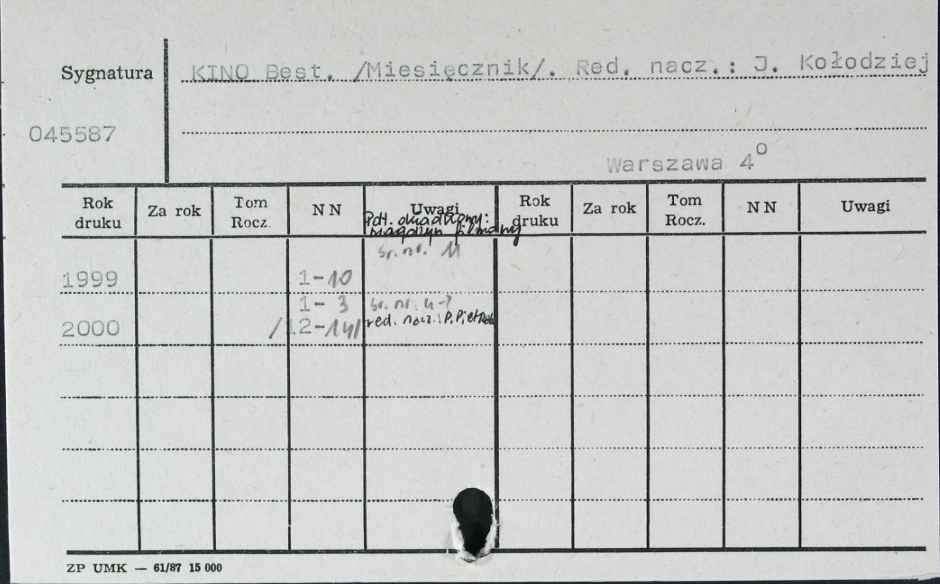 Sygnatura KINO Best. /Miesięcznik/. Red. nacz.: J. Kołodziej
045587
Warszawa 4°
Rok druku Za rok Tom Rocz. N N Uwagi Rok druku Za rok Tom Rocz. N N Uwagi
Pdt. dwadtowy:
magazyn filmowy
br. nr. 11
1999 1-10
1-3 br. nr. 4-7
2000 /12-14/ red. nacz.: P.
ZP UMK — 61/87 15 000